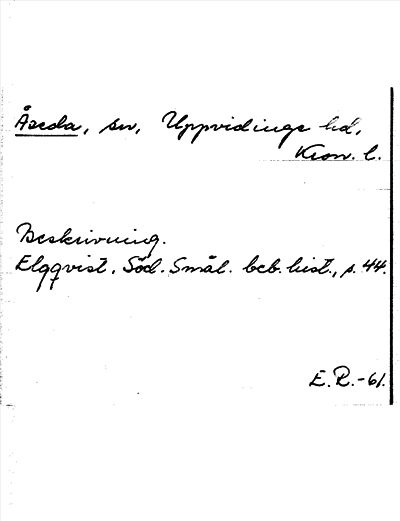 Åseda, sn, Uppvidinge hd,
Kron. l.
Beskrivning.
Elgqvist, Söd. Smål. beb. hist., s. 44.
E. R. -61.